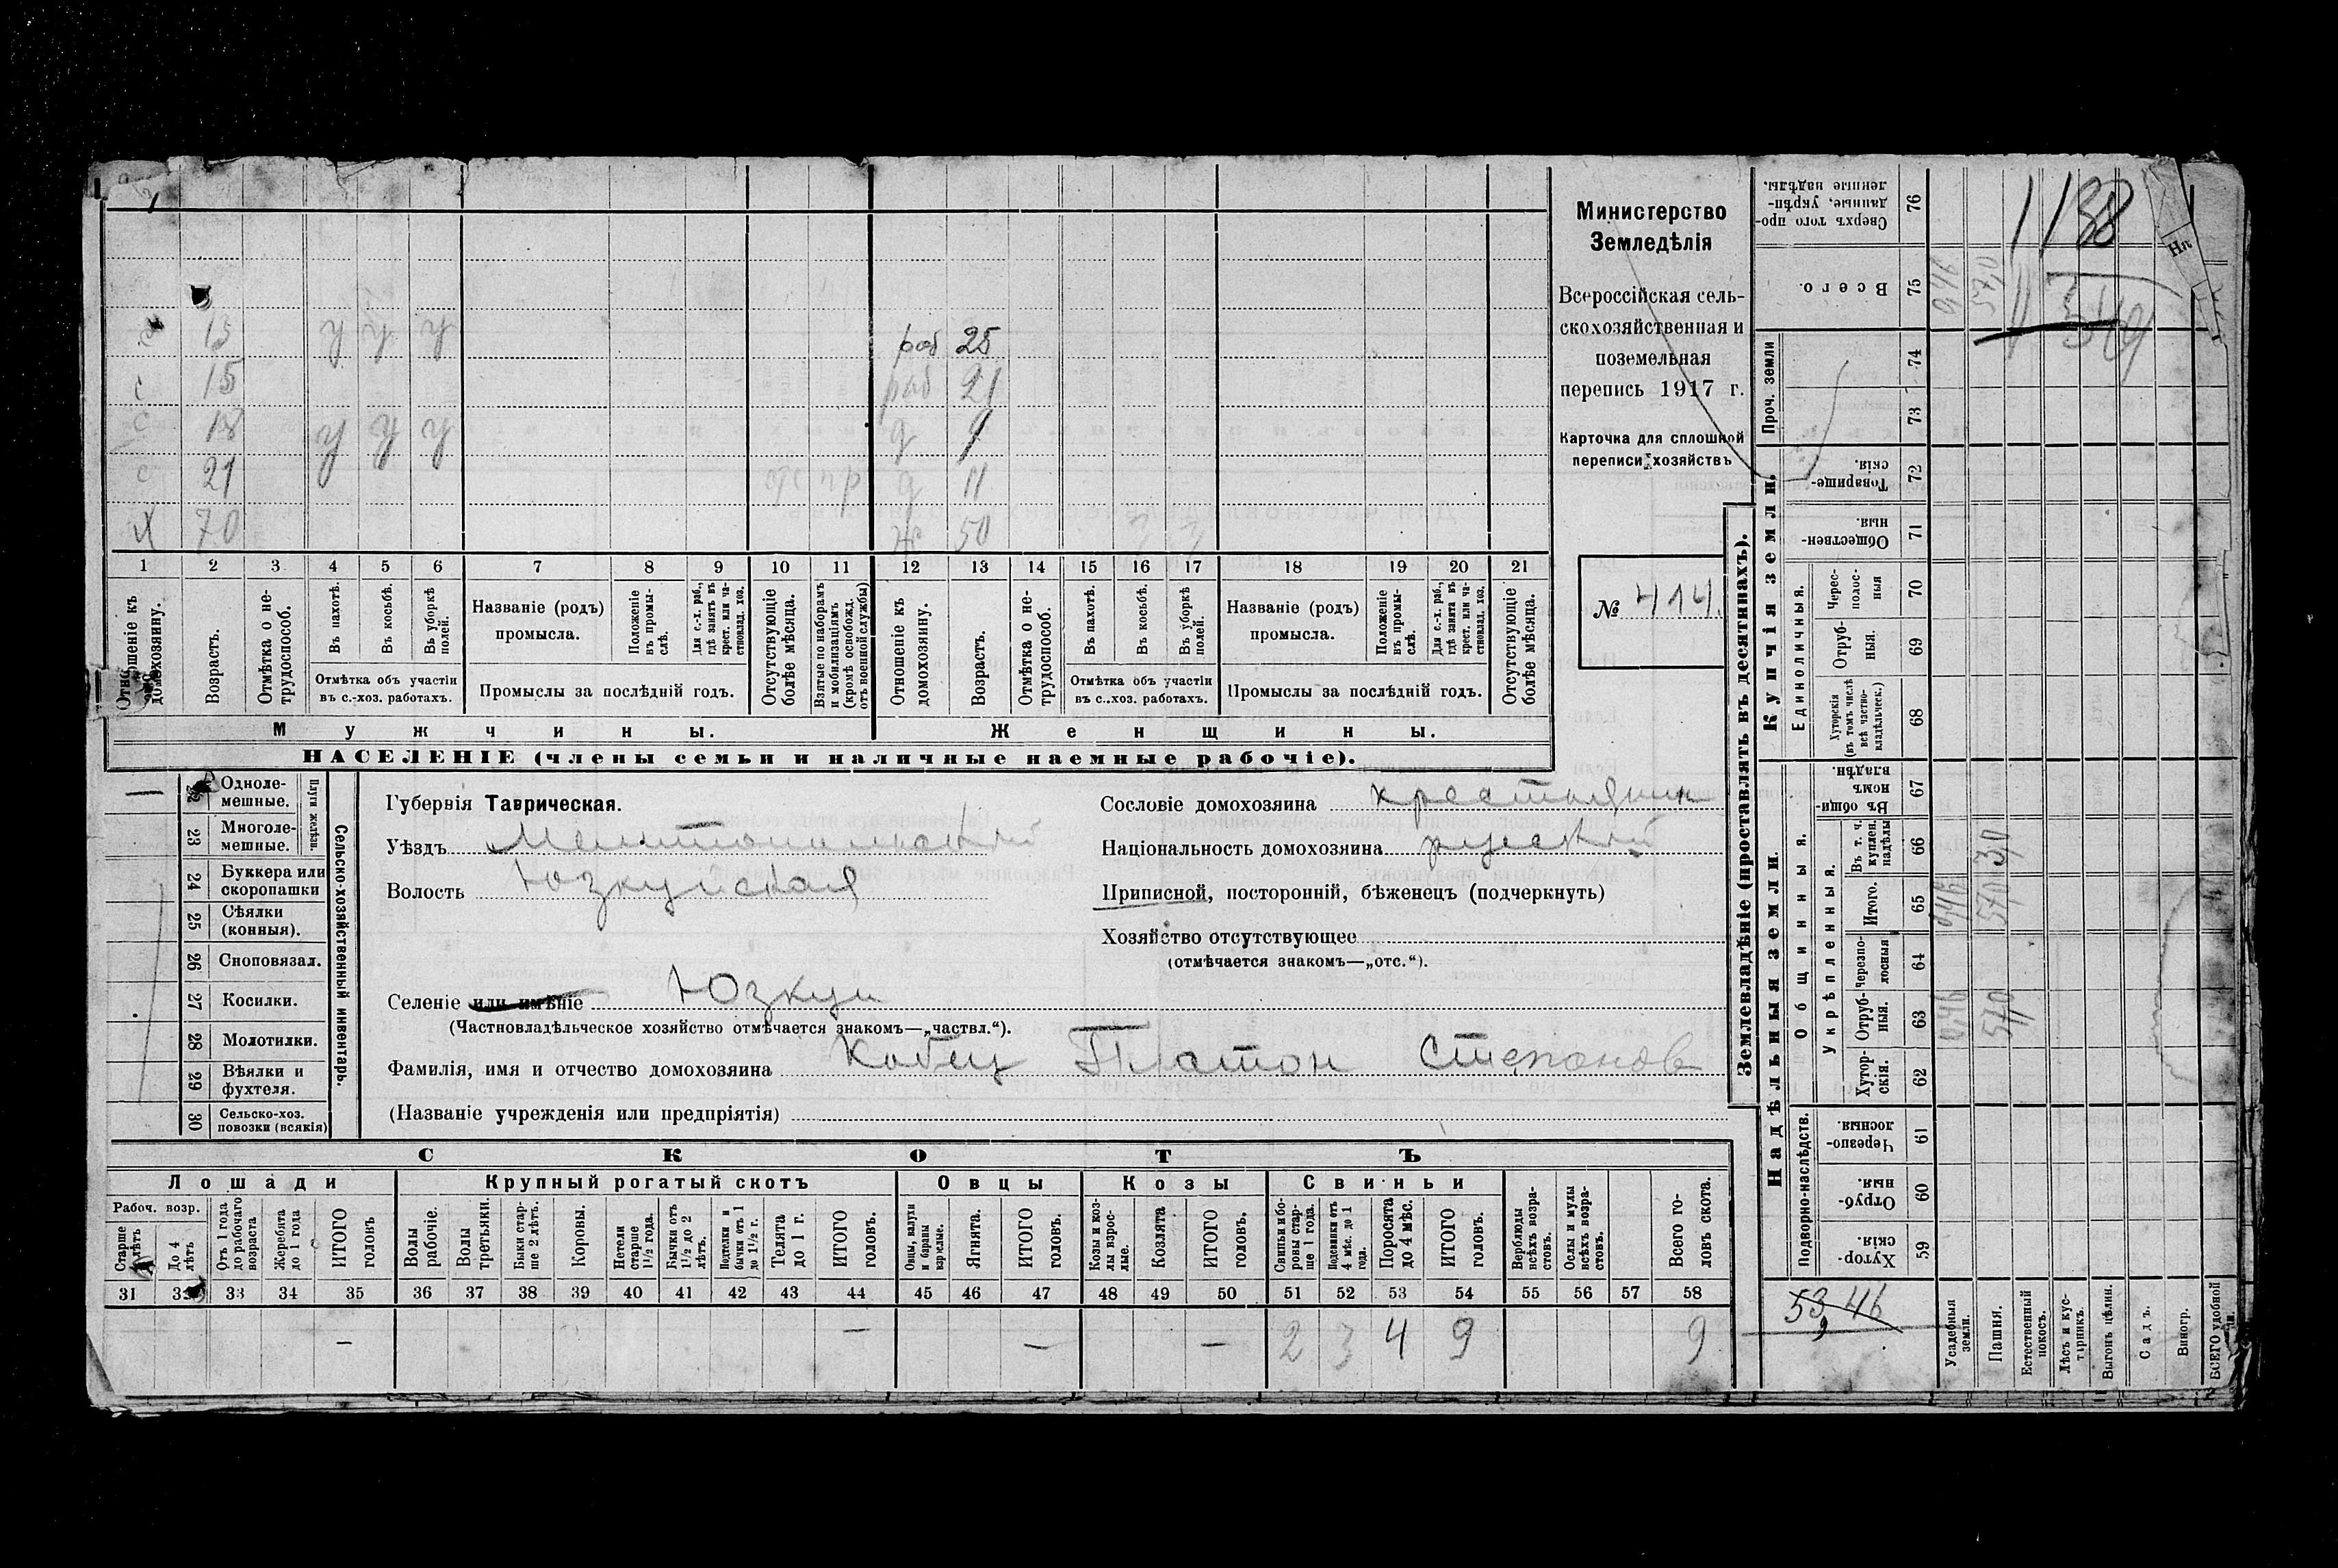 1138
349
Министерство
Земледѣлія
Всероссійская сель-
скохозяйственная и
поземельная
перепись 1917 г.
Карточка для сплошной
переписи хозяйствъ
№ 414.
13 у у у раб 25
15 раб 21
18 у у у д 9
с 21 отс пр д 11
х 70 ж 50
1 2 3 4 5 6 7 8 9 10 11 12 13 14 15 16 17 18 19 20 21
Отношеніе къ домохозяину.
Возрастъ.
Отмѣтка о не-трудоспособ.
Въ пахотѣ.
Въ косьбѣ.
Въ уборкѣ полей.
Отмѣтка объ участіи
въ с.-хоз. работахъ.
Названіе (родъ)
промысла.
Положеніе въ промы-слѣ.
Для с.-х. раб., гдѣ занятъ въ крест. или ча-стновлад. хоз.
Промыслы за послѣдній годъ.
Отсутствующіе болѣе мѣсяца.
Взятые по наборамъ и мобилизаціямъ (кромѣ освобожд. отъ военной службы)
Отношеніе къ домохозяину.
Возрастъ.
Отмѣтка о не-трудоспособ.
Въ пахотѣ.
Въ косьбѣ.
Въ уборкѣ полей.
Отмѣтка объ участіи
въ с.-хоз. работахъ.
Названіе (родъ)
промысла.
Положеніе въ промы-слѣ.
Для с.-х. раб., гдѣ занята въ крест. или ча-стновлад. хоз.
Промыслы за послѣдній годъ.
Отсутствующіе болѣе мѣсяца.
Мужчины. Женщины.
НАСЕЛЕНІЕ (члены семьи и наличные наемные рабочіе).
Сельско-хозяйственный инвентарь.
Плуги желѣзн.
Одноле-мешные.
23 Многоле-мешные.
24 Буккера или скоропашки
25 Сѣялки (конныя).
26 Сноповязал.
27 Косилки.
28 Молотилки.
29 Вѣялки и фухтеля.
30 Сельско-хоз. повозки (всякія)
Губернія Таврическая.
Уѣздъ Мелитопольский
Волость Юзкуйская
Сословіе домохозяина крестьянин
Національность домохозяина русский
Приписной, посторонній, бѣженецъ (подчеркнуть)
Хозяйство отсутствующее
(отмѣчается знакомъ—„отс.“).
Селеніе или имѣніе Юзкуи
(Частновладѣльческое хозяйство отмѣчается знакомъ—„частвл.“).
Фамилія, имя и отчество домохозяина Кобец Платон Степанов
(Названіе учрежденія или предпріятія)
СКОТЪ
Лошади Крупный рогатый скотъ Овцы Козы Свиньи
Рабоч. возр.
Старше 4 лѣтъ
До 4 лѣтъ
Отъ 1 года до рабочаго возраста
Жеребята до 1 года
ИТОГО головъ
Волы рабочіе.
Волы третьяки.
Быки стар-ше 2 лѣтъ.
Коровы.
Нетели старше 1½ года.
Бычки отъ 1½ до 2 лѣтъ.
Подтелки и бычки отъ 1 до 1½ г.
Телята до 1 г.
ИТОГО головъ.
Овцы, валухи и бараны взрослые.
Ягнята.
ИТОГО головъ.
Козы и коз-лы взрос-лые.
Козлята
ИТОГО головъ.
Свиньи и бо-ровы стар-ше 1 года.
Подсвинки отъ 4 мѣс. до 1 года.
Поросята до 4 мѣс.
ИТОГО головъ.
Верблюды всѣхъ возра-стовъ.
Ослы и мулы всѣхъ возра-стовъ.
Всего го-ловъ скота.
31 32 33 34 35 36 37 38 39 40 41 42 43 44 45 46 47 48 49 50 51 52 53 54 55 56 57 58
— — — — 2 3 4 9 9
Землевладѣніе (проставлять въ десятинахъ).
Купчія земли.
Надѣльныя земли.
Сверхъ того про-данные, укрѣп-ленные надѣлы. 76
Всего. 75 0,46 57,0
Проч. земли 74
73
Товарище-скія. 72
Обществен-ныя. 71
Единоличныя.
Черес-полос-ныя 70
Отруб-ныя. 69
Хуторскія (въ томъ числѣ всѣ частно-владѣльческ.) 68
Общинныя.
Въ общи-номъ владѣн. 67
Укрѣпленныя.
Въ т. ч. куплен. надѣлы 66
Итого. 65 0,46 57,0
Черезпо-лосныя 64
Отруб-ныя. 63 0,46 57,0
Хутор-скія. 62
Подворно-наслѣдств.
Черезпо-лосныя. 61
Отруб-ныя. 60
Хутор-скія. 59
53,46
Усадебныя земли.
Пашня.
Естественный покосъ.
Лѣсъ и кус-тарникъ.
Выгонъ цѣлин.
Садъ.
Виногр.
ВСЕГО удобной